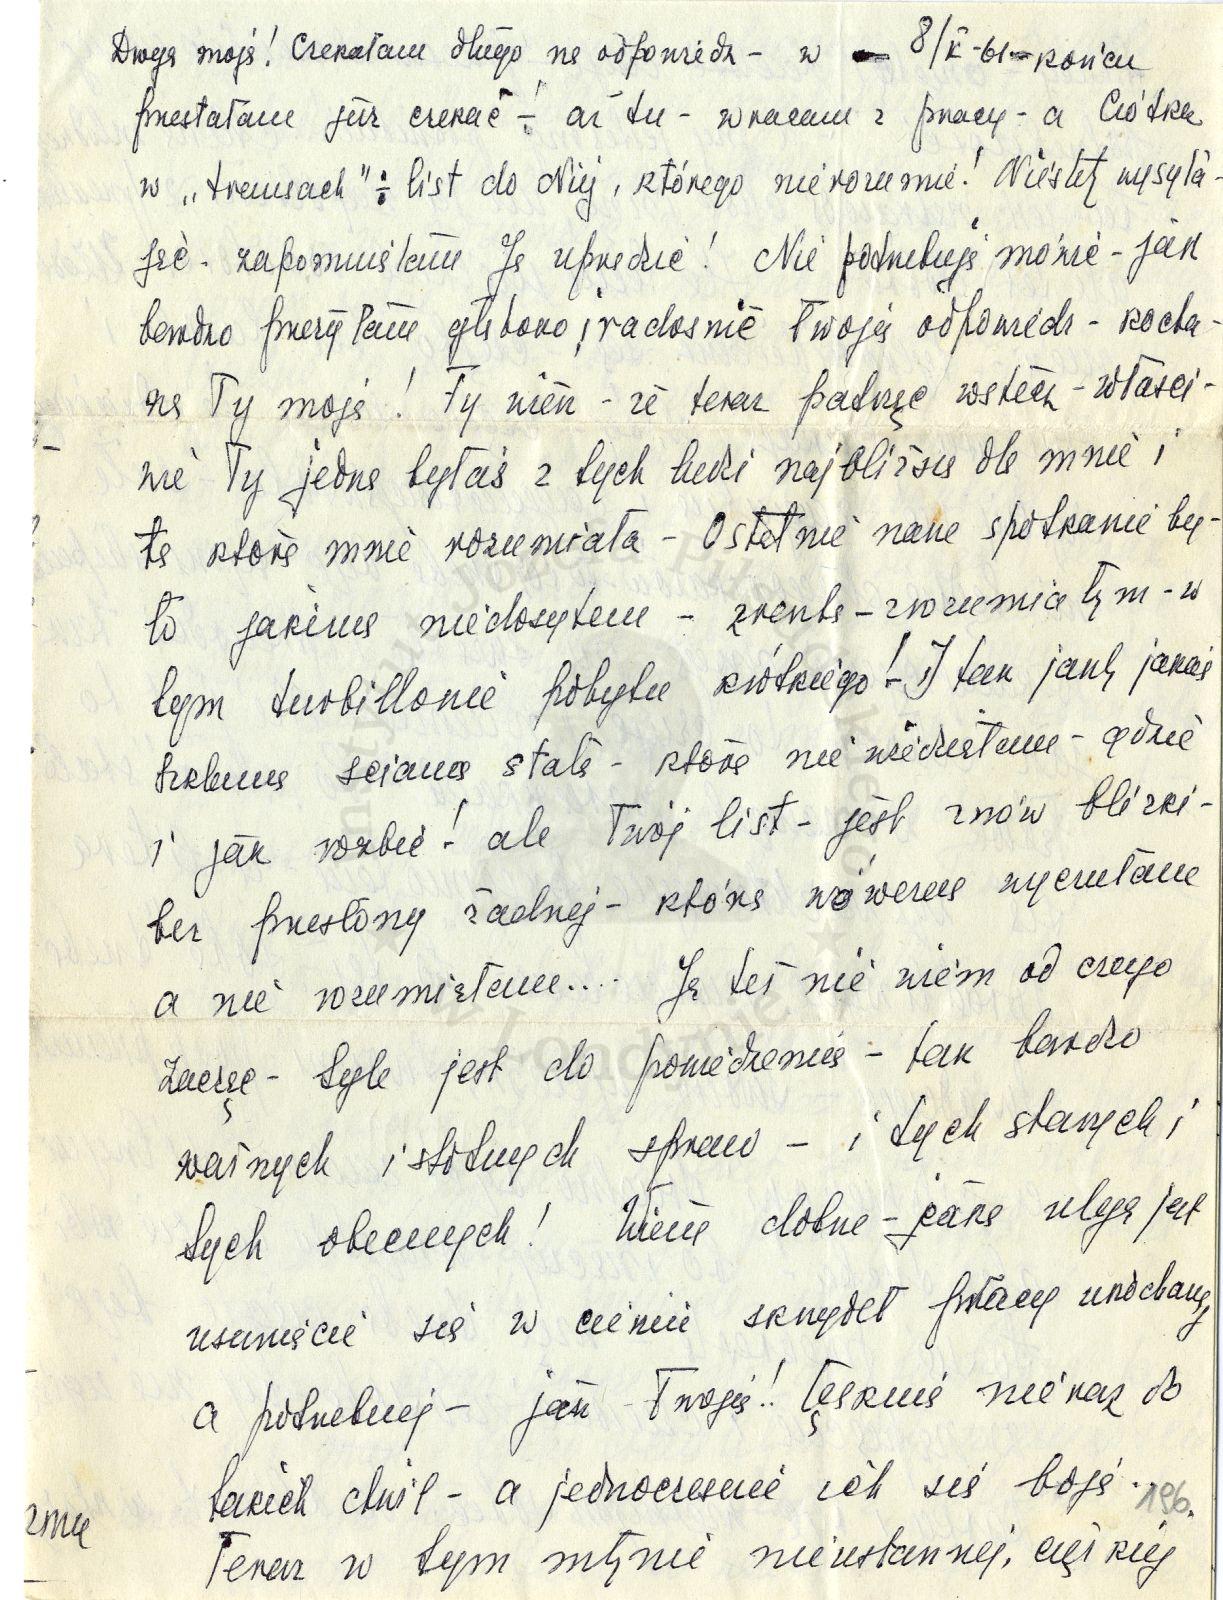 Droga moja! Czekałam długo na odpowiedź - w — 8/X-61 - końcu
przestałam już czekać -! aż tu - wracam z pracy - a Ciotka
w „transach" : list do Niej, którego nie rozumie! Niestety wysyła-
jąc - zapomniałam Ją uprzedzić! Nie potrzebuję mówić - jak
bardzo przeżyłam głęboko i radośnie Twoją odpowiedź - kocha-
na Ty moja! Ty wiesz - że teraz patrząc wstecz - właści-
wie Ty jedna byłaś z tych ludzi najbliższa dla mnie i
tą która mnie rozumiała - Ostatnie nasze spotkanie by-
ło jakimś niedosytem - zresztą - zrozumiałym - w
tym turbillonie pobytu krótkiego! - I tak jakby jakaś
szklana ściana stała - którą nie wiedziałam - gdzie
i jak rozbić! ale Twój list - jest znów bliski -
bez przesłony żadnej - którą wówczas wyczułam
a nie rozumiałam.... Ja też nie wiem od czego
zacząć - tyle jest do powiedzenia - tak bardzo
ważnych istotnych spraw - i tych starych i
tych obecnych! Wiem dobrze - jaką ulgą jest
usunięcie się w cienie skrzydeł pracy ukochanej,
a potrzebnej - jak Twoja!! Tęsknię nieraz do
takich chwil - a jednocześnie ich się boję.
196.
Teraz w tym młynie nieustannej, ciężkiej